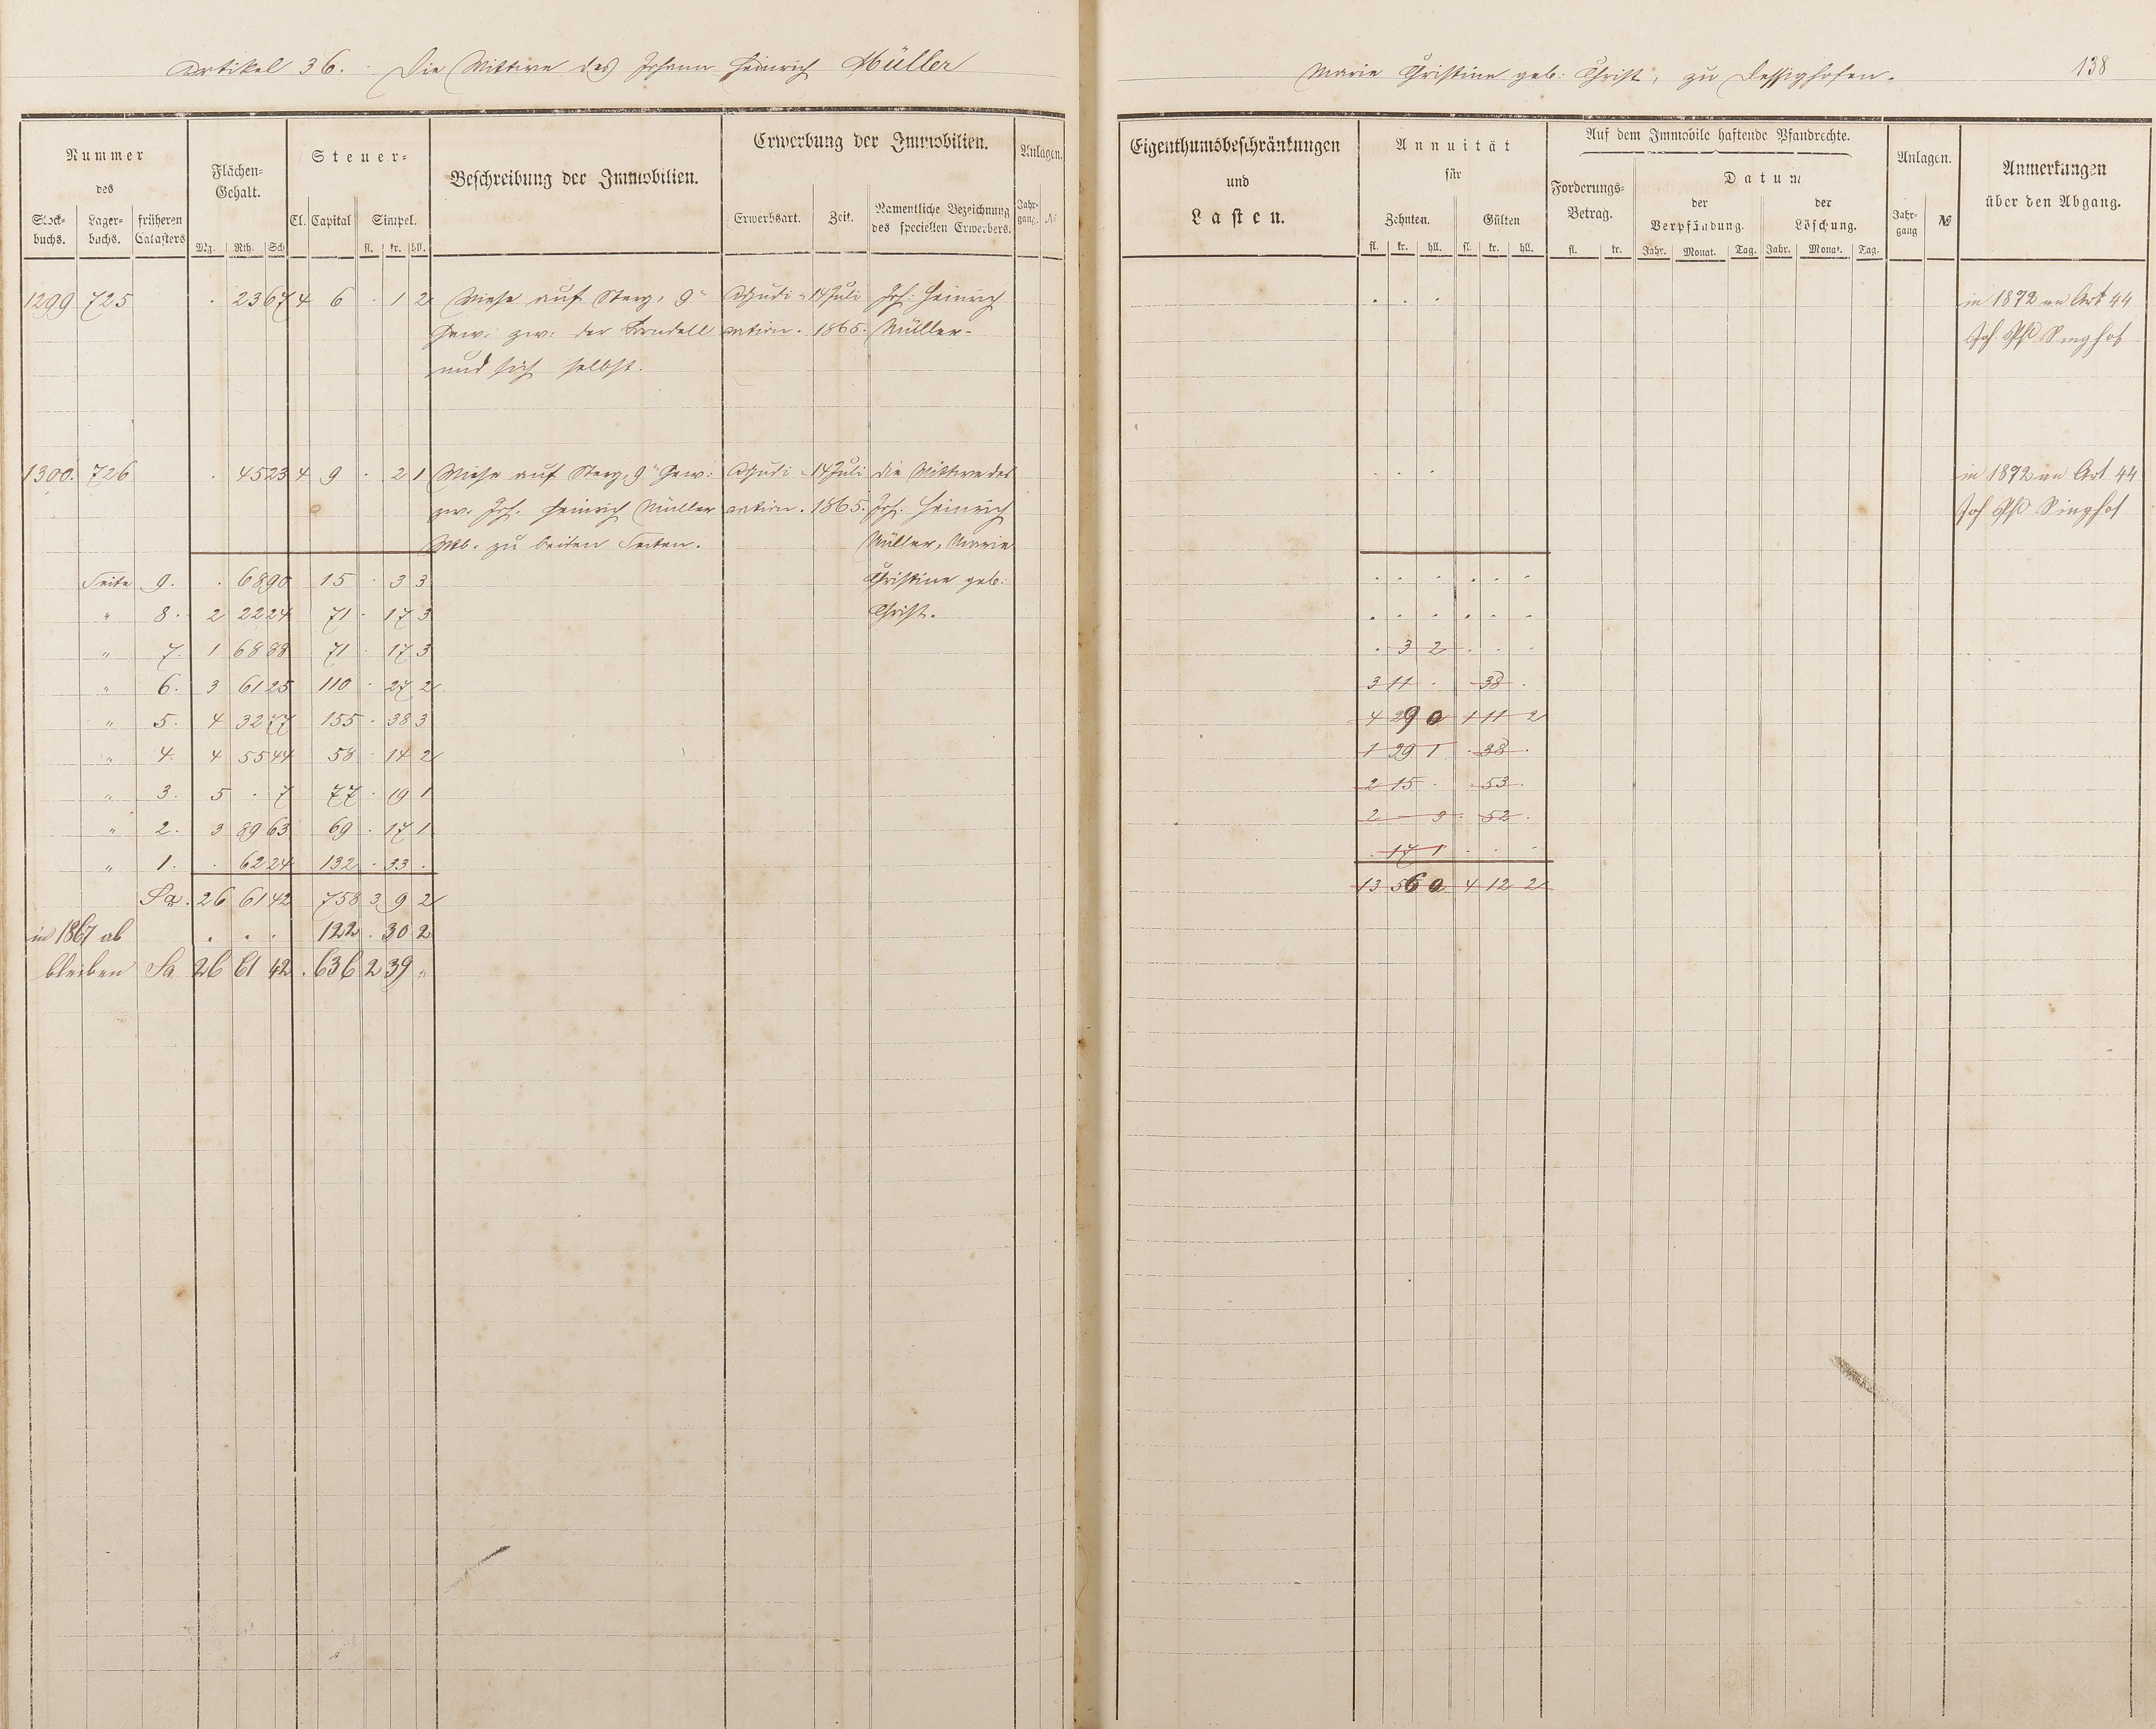 Artikel 36. Die Wittwe des Johann Heinrich Müller
Marie Christine geb: Christ, zu Dessighofen.
138
Nummer
des
Stock-
buchs.
Lager-
buchs.
früheren
Catasters
Flächen-
Gehalt.
Mg. Rth. Sch.
Steuer-
Cl. Capital Simpel.
fl. kr. hll.
Beschreibung der Immobilien.
Erwerbung der Immobilien.
Erwerbsart. Zeit.
Namentliche Bezeichnung
des speciellen Erwerbers.
Anlagen.
Jahr-
gang. №
Eigenthumsbeschränkungen
und
Lasten.
Annuität
für
Zehnten. Gülten
fl. kr. hll. fl. kr. hll.
Auf dem Immobile haftende Pfandrechte.
Forderungs-
Betrag.
fl. kr.
Datum
der
Verpfändung.
Jahr. Monat. Tag.
der
Löschung.
Jahr. Monat. Tag.
Anlagen.
Jahr-
gang №
Anmerkungen
über den Abgang.
1299 725 . 23 67 4 6 . 1 2 Wiese auf Sterz, 9" Adjudi- 14 Juli Joh: Heinrich . . . in 1872 an Art 44
Gew: zw: der cation. 1865. Müller- Joh Singhof
und sich selbst.
1300. 726 . 45 23 4 9 . 2 1 Wiese auf Sterz, 9" Gew: Adjudi- 14 Juli die Wittwe des . . . in 1872 an Art 44
zw. Joh. Heinrich Müller cation. 1865. Joh. Heinrich Joh Singhof
Wb. zu beiden Seiten. Müller, Marie
Seite 9. . 68 90 15 . 3 3 Christine geb: . . . . . .
" 8. 2 22 24 71 . 17 3 Christ. . . . . . .
" 7. 1 68 88 71 . 17 3 . 3 2 . . .
" 6. 3 61 25 110 . 27 2 3 11 . . 38 .
" 5. 4 32 77 155 . 38 3 4 29 0 1 11 2
" 4. 4 55 44 58 . 14 2 1 29 1 . 38 .
" 3. 5 . 7 77 . 19 1 2 15 . . 53 .
" 2. 3 89 63 69 . 17 1 2 - 3 . 52 .
" 1. . 62 24 132 . 33 . . 17 1 . . .
Sa. 26 61 42 758 3 9 2 13 56 0 4 12 2
in 1867 ab . . . 122 . 30 2
bleiben Sa 26 61 42 . 636 2 39 "